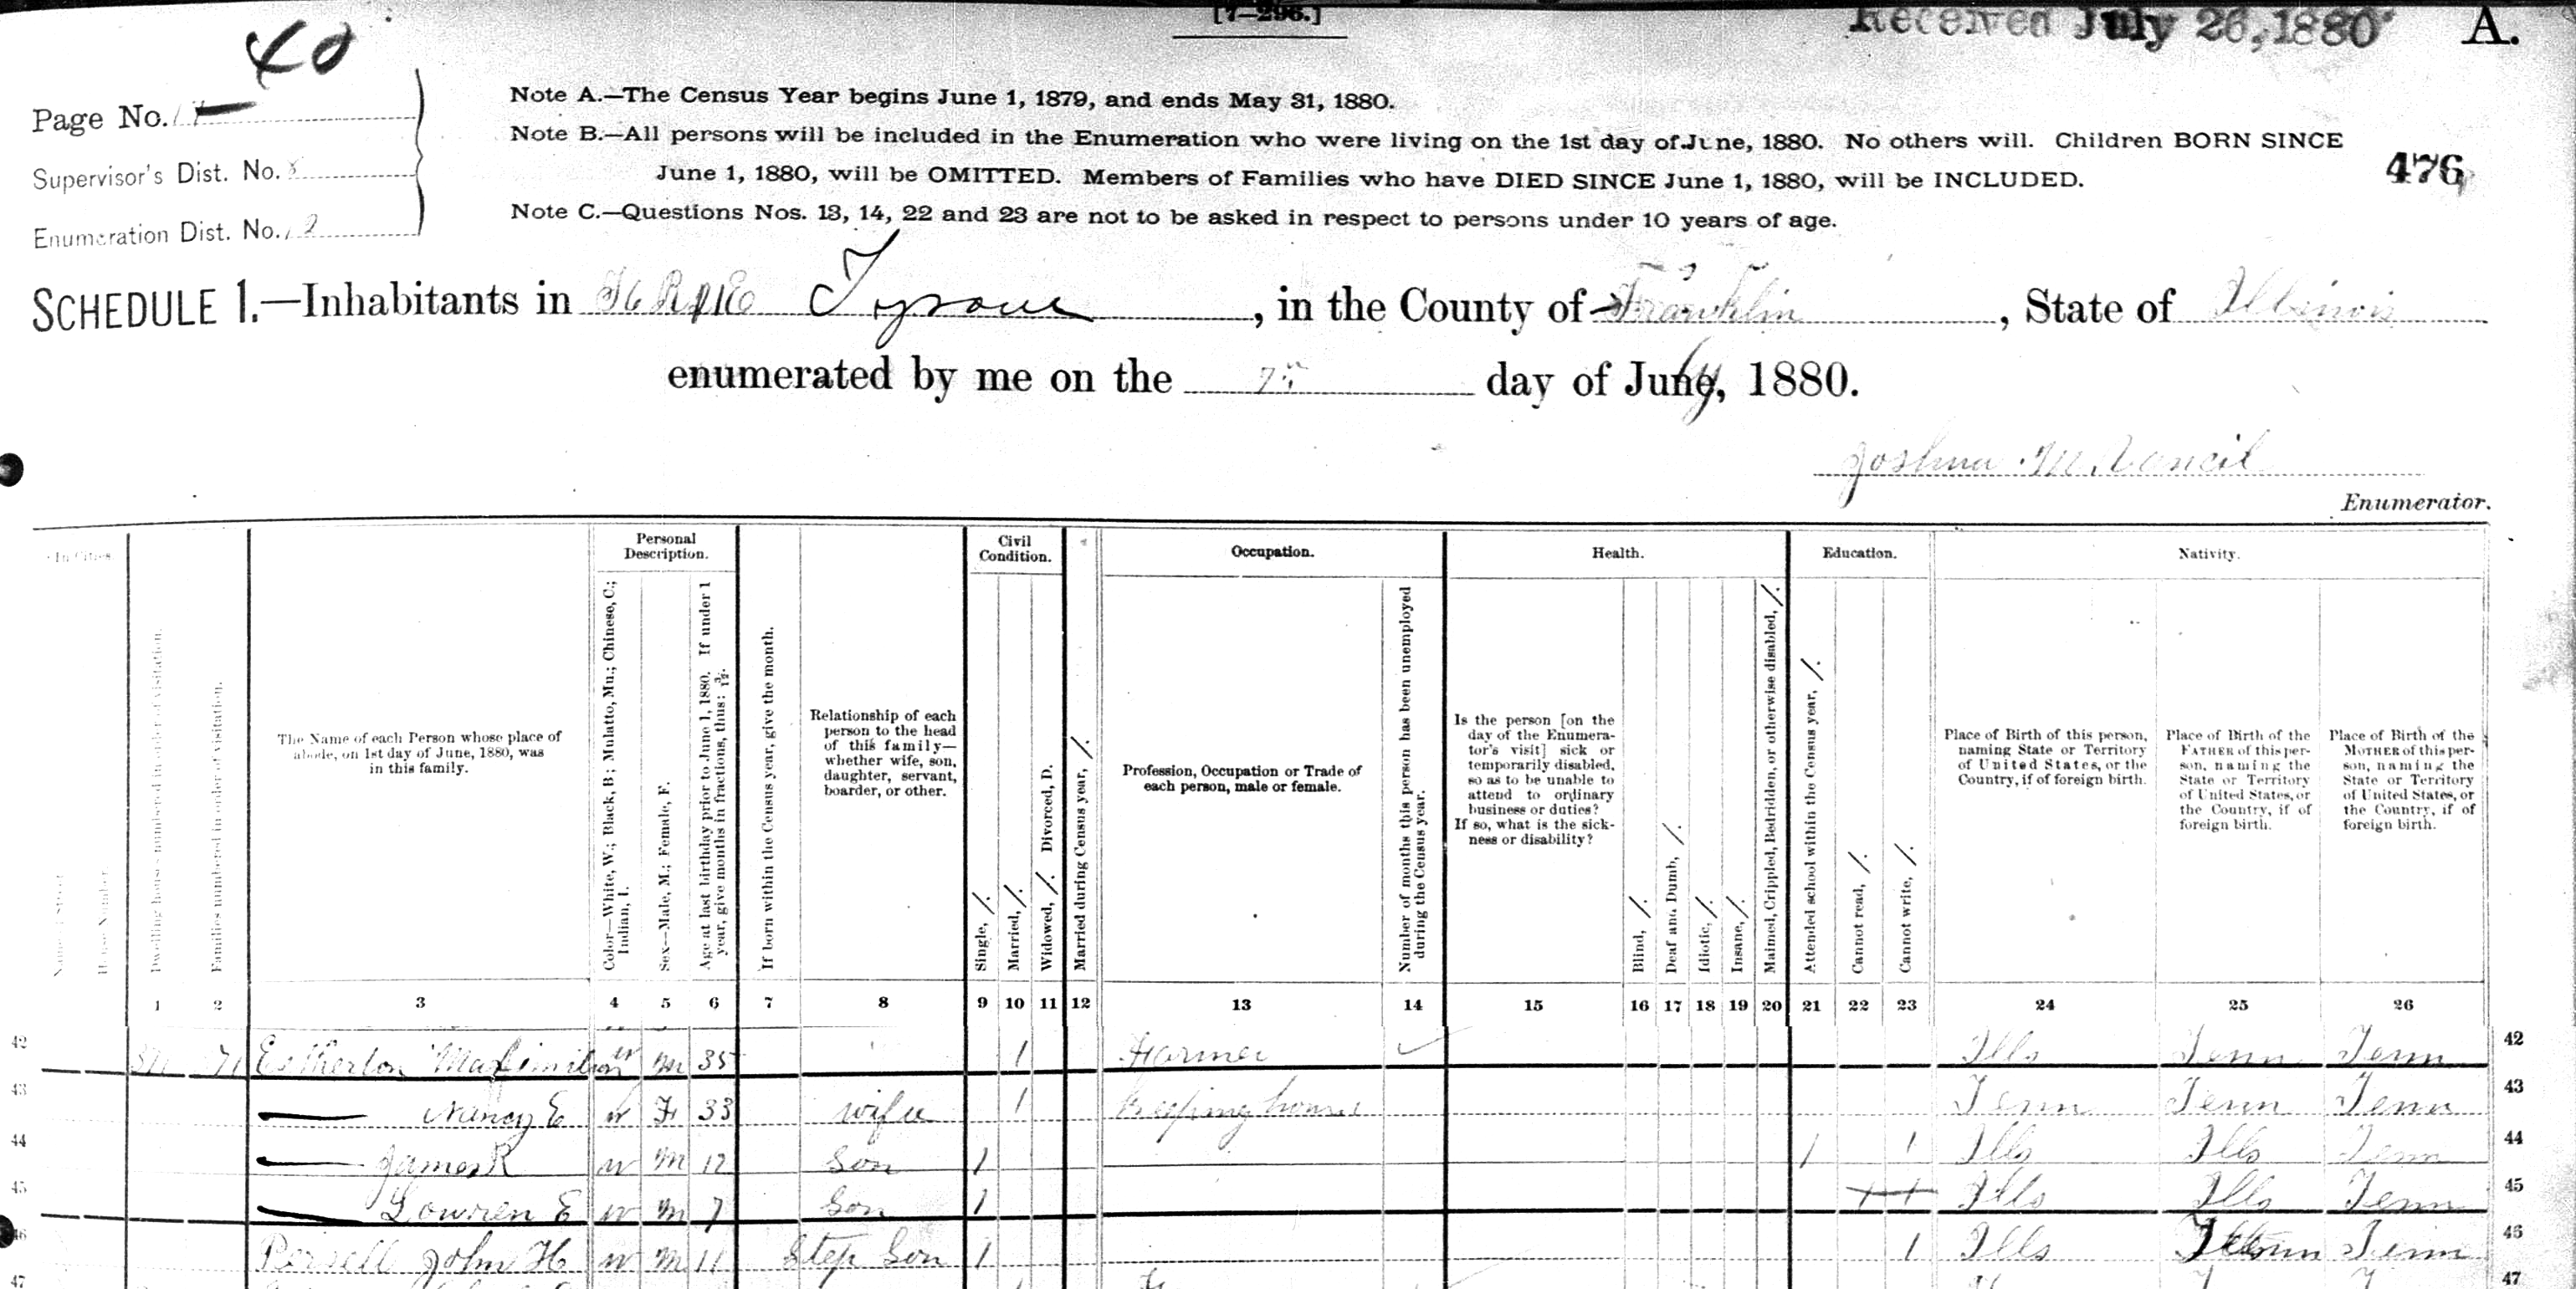 [7—296.]
Received July 26, 1880
A.
40
Page No.
Supervisor's Dist. No.
Enumeration Dist. No.
Note A.—The Census Year begins June 1, 1879, and ends May 31, 1880.
Note B.—All persons will be included in the Enumeration who were living on the 1st day of June, 1880. No others will. Children BORN SINCE
June 1, 1880, will be OMITTED. Members of Families who have DIED SINCE June 1, 1880, will be INCLUDED.
Note C.—Questions Nos. 13, 14, 22 and 23 are not to be asked in respect to persons under 10 years of age.
476
SCHEDULE 1.—Inhabitants in Tyrone, in the County of Franklin, State of Illinois
enumerated by me on the day of July, 1880.
Joshua M
Enumerator.
In Cities.
Personal
Description.
Civil
Condition.
Occupation.
Health.
Education.
Nativity.
House Number
Dwelling houses numbered in order of visitation.
Families numbered in order of visitation.
The Name of each Person whose place of
abode, on 1st day of June, 1880, was
in this family.
Color—White, W.; Black, B; Mulatto, Mu.; Chinese, C.;
Indian, I.
Sex—Male, M.; Female, F.
Age at last birthday prior to June 1, 1880. If under 1
year, give months in fractions, thus: 3/12.
If born within the Census year, give the month.
Relationship of each
person to the head
of this family—
whether wife, son,
daughter, servant,
boarder, or other.
Single, /.
Married, /.
Widowed, /. Divorced, D.
Married during Census year, /.
Profession, Occupation or Trade of
each person, male or female.
Number of months this person has been unemployed
during the Census year.
Is the person [on the
day of the Enumera-
tor's visit] sick or
temporarily disabled,
so as to be unable to
attend to ordinary
business or duties?
If so, what is the sick-
ness or disability?
Blind, /.
Deaf and Dumb, /.
Idiotic, /.
Insane, /.
Maimed, Crippled, Bedridden, or otherwise disabled, /.
Attended school within the Census year, /.
Cannot read, /.
Cannot write, /.
Place of Birth of this person,
naming State or Territory
of United States, or the
Country, if of foreign birth.
Place of Birth of the
FATHER of this per-
son, naming the
State or Territory
of United States, or
the Country, if of
foreign birth.
Place of Birth of the
MOTHER of this per-
son, naming the
State or Territory
of United States, or
the Country, if of
foreign birth.
1 2 3 4 5 6 7 8 9 10 11 12 13 14 15 16 17 18 19 20 21 22 23 24 25 26
42 Etherton Maximilion W M 35 / Farmer Ills Tenn Tenn 42
43 — Nancy E W F 33 wife / Keeping house Tenn Tenn Tenn 43
44 — James R W M 12 Son / / / Ills Ills Tenn 44
45 — E W M 7 Son / Ills Ills Tenn 45
46 John H W M 11 Step Son / / Ills Tenn Tenn 46
47 47